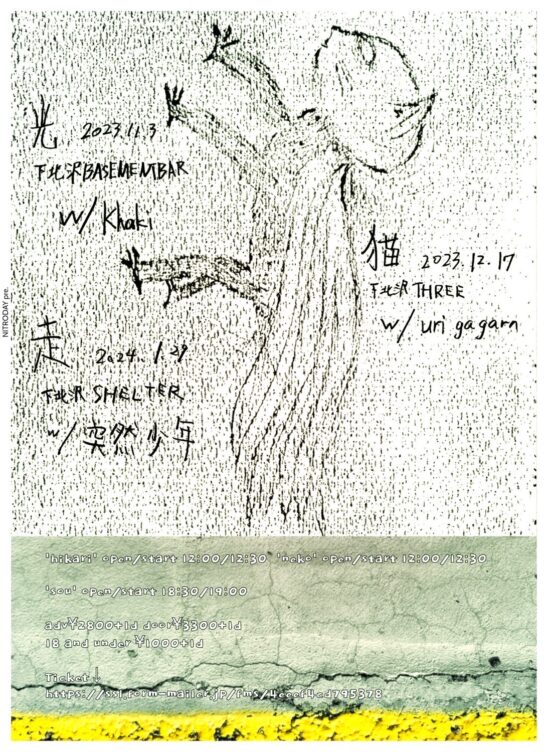 光 2023.11.3
下北沢BASEMENTBAR
w/ Khaki
猫 2023.12.17
下北沢THREE
w/ uri gagarn
NITRODAY pre.
走 2024.1.29
下北沢SHELTER
w/ 突然少年
'hikari' open/start 12:00/12:30 'neko' open/start 12:00/12:30
'sou' open/start 18:30/19:00
adv¥2800+1d door¥3300+1d
18 and under ¥1000+1d
Ticket↓